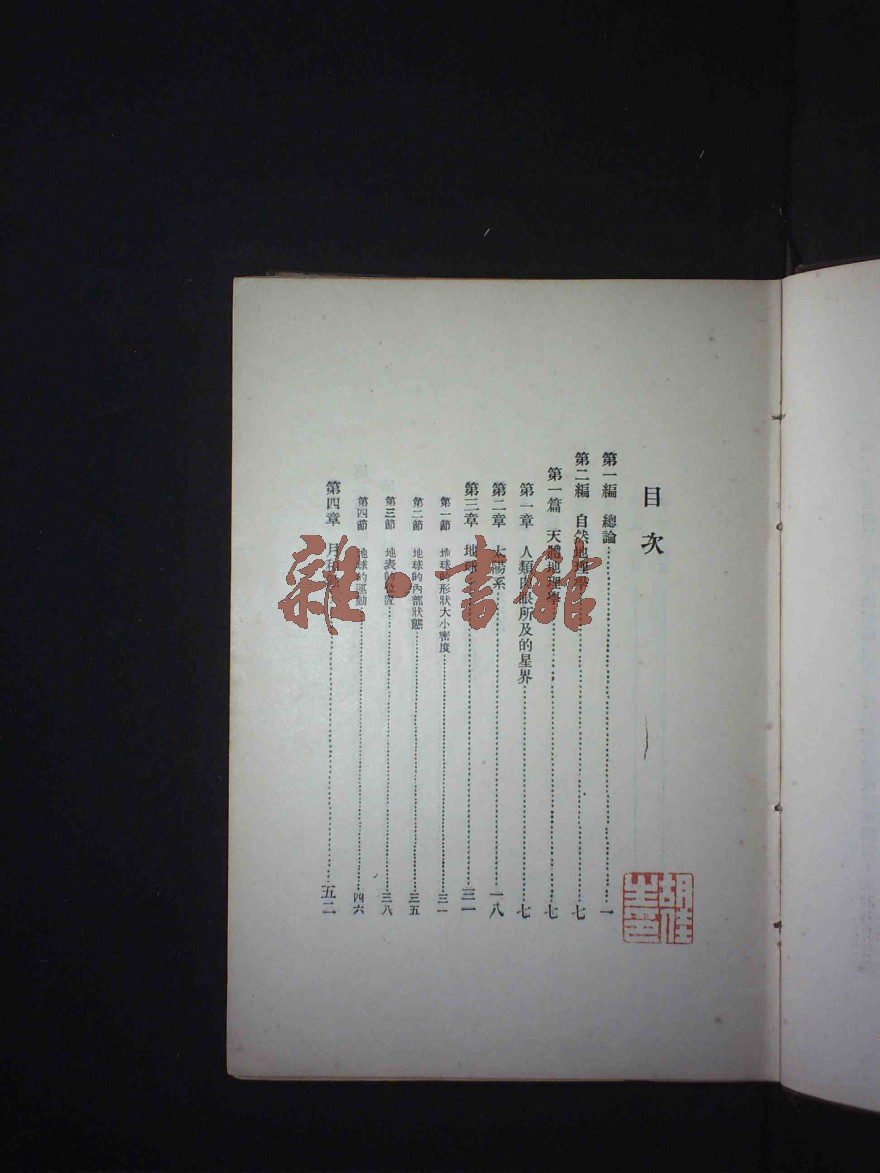 目次
第一編 總論 一
第二編 自然地理學 七
第一篇 天體地理學 七
第一章 人類肉眼所及的星界 七
第二章 太陽系 一八
第三章 地球 三一
第一節 地球的形狀大小密度 三一
第二節 地球的內部狀態 三五
第三節 地表的 三八
第四節 地球的運動 四六
第四章 月 五二
雜·書館